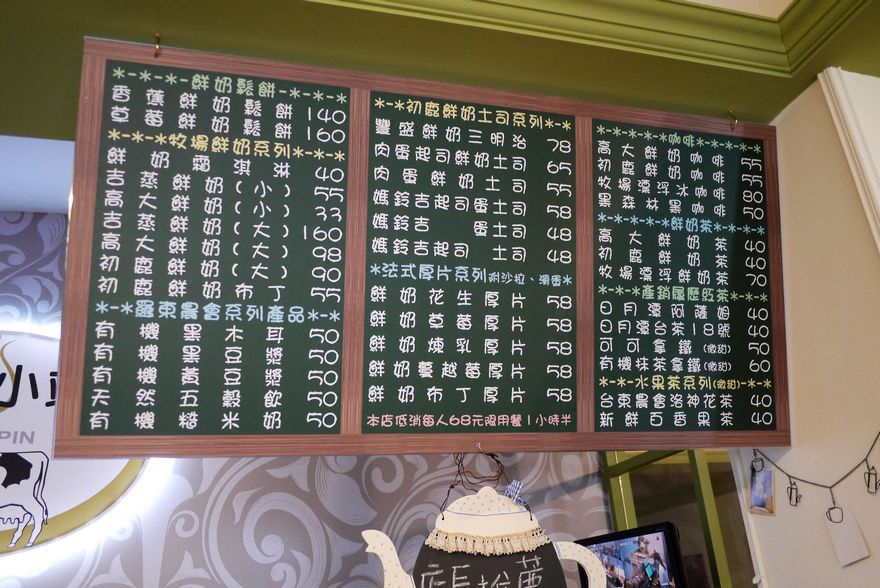 *-*-*-鮮奶鬆餅-*-*-*
香蕉鮮奶鬆餅 140
草莓鮮奶鬆餅 160
*-*-*牧場鮮奶系列*-*-*
鮮奶霜淇淋 40
吉蒸鮮奶(小) 55
高大鮮奶(小) 33
吉蒸鮮奶(大) 160
高大鮮奶(大) 98
初鹿鮮奶(大) 90
初鹿鮮奶布丁 55
*-*羅東農會系列產品*-*
有機黑木耳 50
有機黑豆漿 50
有機黃豆漿 50
天然五穀飲 50
有機糙米奶 50
*-*初鹿鮮奶土司系列*-*
豐盛鮮奶三明治 78
肉蛋起司鮮奶土司 65
肉蛋鮮奶土司 55
媽鈴吉起司蛋土司 58
媽鈴吉 蛋土司 48
媽鈴吉起司 土司 48
*法式厚片系列附沙拉、湯蛋*
鮮奶花生厚片 58
鮮奶草莓厚片 58
鮮奶煉乳厚片 58
鮮奶蔓越莓厚片 58
鮮奶布丁厚片 58
本店低消每人68元限用餐1小時半
*-*-*-*咖啡*-*-*-*-*
高大鮮奶咖啡 55
初鹿鮮奶咖啡 55
牧場漂浮冰咖啡 80
黑森林黑咖啡 50
*-*-*-*-*鮮奶茶*-*-*
高大鮮奶茶 40
初鹿鮮奶茶 40
牧場漂浮鮮奶茶 70
*-*-*產銷履歷紅茶*-*-*-*
日月潭阿薩姆 40
日月潭台茶18號 40
可可拿鐵(微甜) 50
有機抹茶拿鐵(微甜) 60
*-*-*水果茶系列(微甜)-*-*
台東農會洛神花茶 40
新鮮百香果茶 40
小
PIN
店長推薦